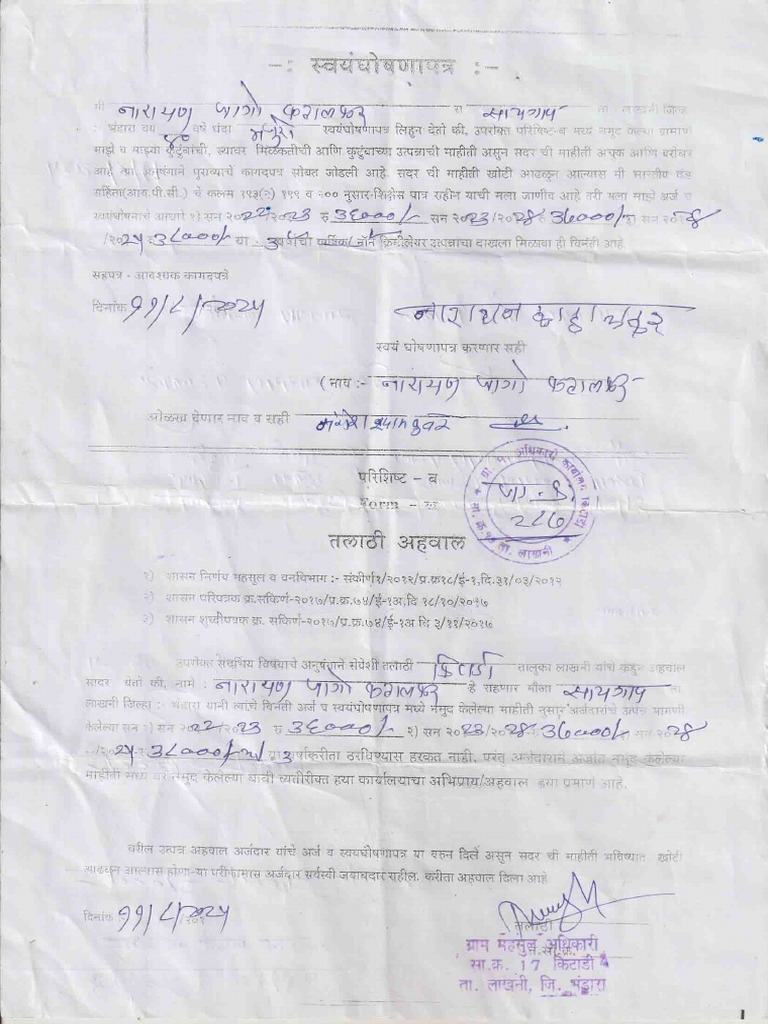 -: स्वयंघोषणापत्र :-
मी नारायण जागो करालकर रा सायगाव ता लाखनी जिल्हा
:- भंडारा वय ४० वर्षे धंदा मजुरी स्वयंघोषणापत्र लिहुन देतो की, उपरोक्त परिशिष्ट-ब मध्ये नमुद केल्या प्रमाणे
माझे व माझ्या कुटुंबाची, स्थावर मिळकतीची आणि कुटुंबाच्या उत्पन्नाची माहीती असुन सदर ची माहीती अचुक आणि बरोबर
आहे त्या अनुषंगाने पुराव्याचे कागदपत्र सोबत जोडली आहे. सदर ची माहीती खोटी आढळुन आल्यास मी भारतीय दंड
संहिता(आय.पी.सी.) चे कलम १९३(२) १९९ व २०० नुसार शिक्षेस पात्र राहीन याची मला जाणीव आहे तरी मला माझे अर्ज व
स्वयंघोषनाचे आधारे १) सन २०२२/२०२३ रु ३६०००/- सन २०२३/२०२४ रु ३७०००/- ३) सन २०२४
/२०२५ रु ३८०००/- या 3 वर्षाची वार्षिक/नॉन क्रिमीलेयर उत्पन्नाचा दाखला मिळावा ही विनंती आहे
सहपत्र - आवश्यक कागदपत्रे
दिनांक ११/८/२०२५
स्वयं घोषणापत्र करणार सही
(नाव :- नारायण जागो करालकर
ओळख देणार नाव व सही
परिशिष्ट - ब
Form -
जा.क्र.
२८७
तलाठी अहवाल
१) शासन निर्णय महसुल व वनविभाग :- संकीर्ण१/२०१२/प्र.क्र१८/ई-१,दि.३१/०३/२०१२
२) शासन परिपत्रक क्र.सकिर्ण-२०१७/प्र.क्र.७४/ई-१अ,दि १८/१०/२०१७
३) शासन शुध्दीपत्रक क्र. सकिर्ण-२०१७/प्र.क्र.७४/ई-१अ दि ३/११/२०१७
उपरोक्त संदर्भिय विषयाचे अनुषंगाने सेपेशी तलाठी किटाडी तालुका लाखनी यांचे कडुन अहवाल
सादर येतो की, नामे :- नारायण जागो करालकर हे राहणार मौजा सायगाव ता
लाखनी जिल्हा :- भंडारा यांनी त्यांचे विनंती अर्ज व स्वयंघोषणापत्र मध्ये नमुद केलेल्या माहीती नुसार अर्जदारांचे उत्पन्न प्रमाणी
केलेल्या सन १) सन २०२२/२०२३ रु ३६०००/- २) सन २०२३/२०२४ रु ३७०००/- सन २०२४
/२०२५ रु ३८०००/- या 3 वर्षाकरीता ठरविण्यास हरकत नाही. परंतु अर्जदाराने अर्जात नमुद केलेल्या
माहीती मध्ये वर नमुद केलेल्या बाबी व्यतीरीक्त हया कार्यालयाचा अभिप्राय/अहवाल हया प्रमाणे आहे.
वरील उत्पन्न अहवाल अर्जदार यांचे अर्ज व स्वयंघोषणापत्र या वरुन दिले असुन सदर ची माहीती भविष्यात खोटी
आढळुन आल्यास होणा-या परीणामास अर्जदार सर्वस्वी जवाबदार राहील. करीता अहवाल दिला आहे
दिनांक ११/८/२०२५
तलाठी
ग्राम महसुल अधिकारी
सा.क्र. 17 किटाडी
ता. लाखनी, जि. भंडारा